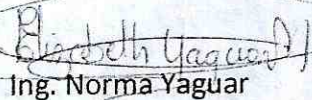 Elizabeth Yaguar
Ing. Norma Yaguar